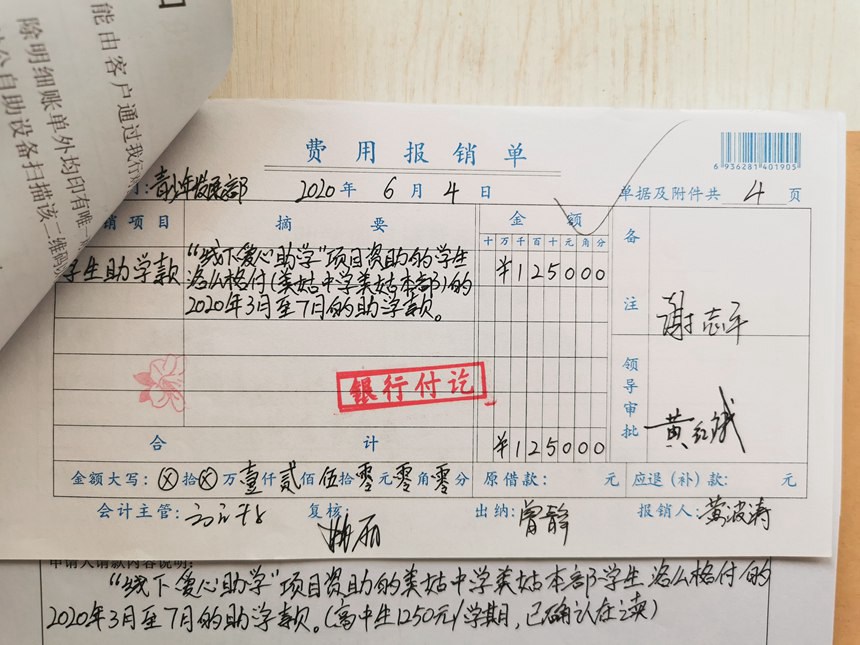 能由客户通过我行
除明细账单外均印有唯一
自助设备扫描该二维码
费用报销单
6 936281 401905
青少年发展部 2020年 6月 4日 单据及附件共 4 页
销项目 摘要 金额 备注
十万千百十元角分
学生助学款 “线下爱心助学”项目资助的学生 ¥125000
洛么格付(美姑中学美姑本部)的
2020年3月至7月的助学款。
谢志平
银行付讫
领导审批
合计 ¥125000
金额大写: ⊗拾⊗万壹仟贰佰伍拾零元零角零分 原借款: 元 应退(补)款: 元
会计主管: 复核: 出纳:曾静 报销人:黄波涛
申请人请款内容说明:
“线下爱心助学”项目资助的美姑中学美姑本部学生洛么格付的
2020年3月至7月的助学款。(高中生1250元/学期,已确认在读)